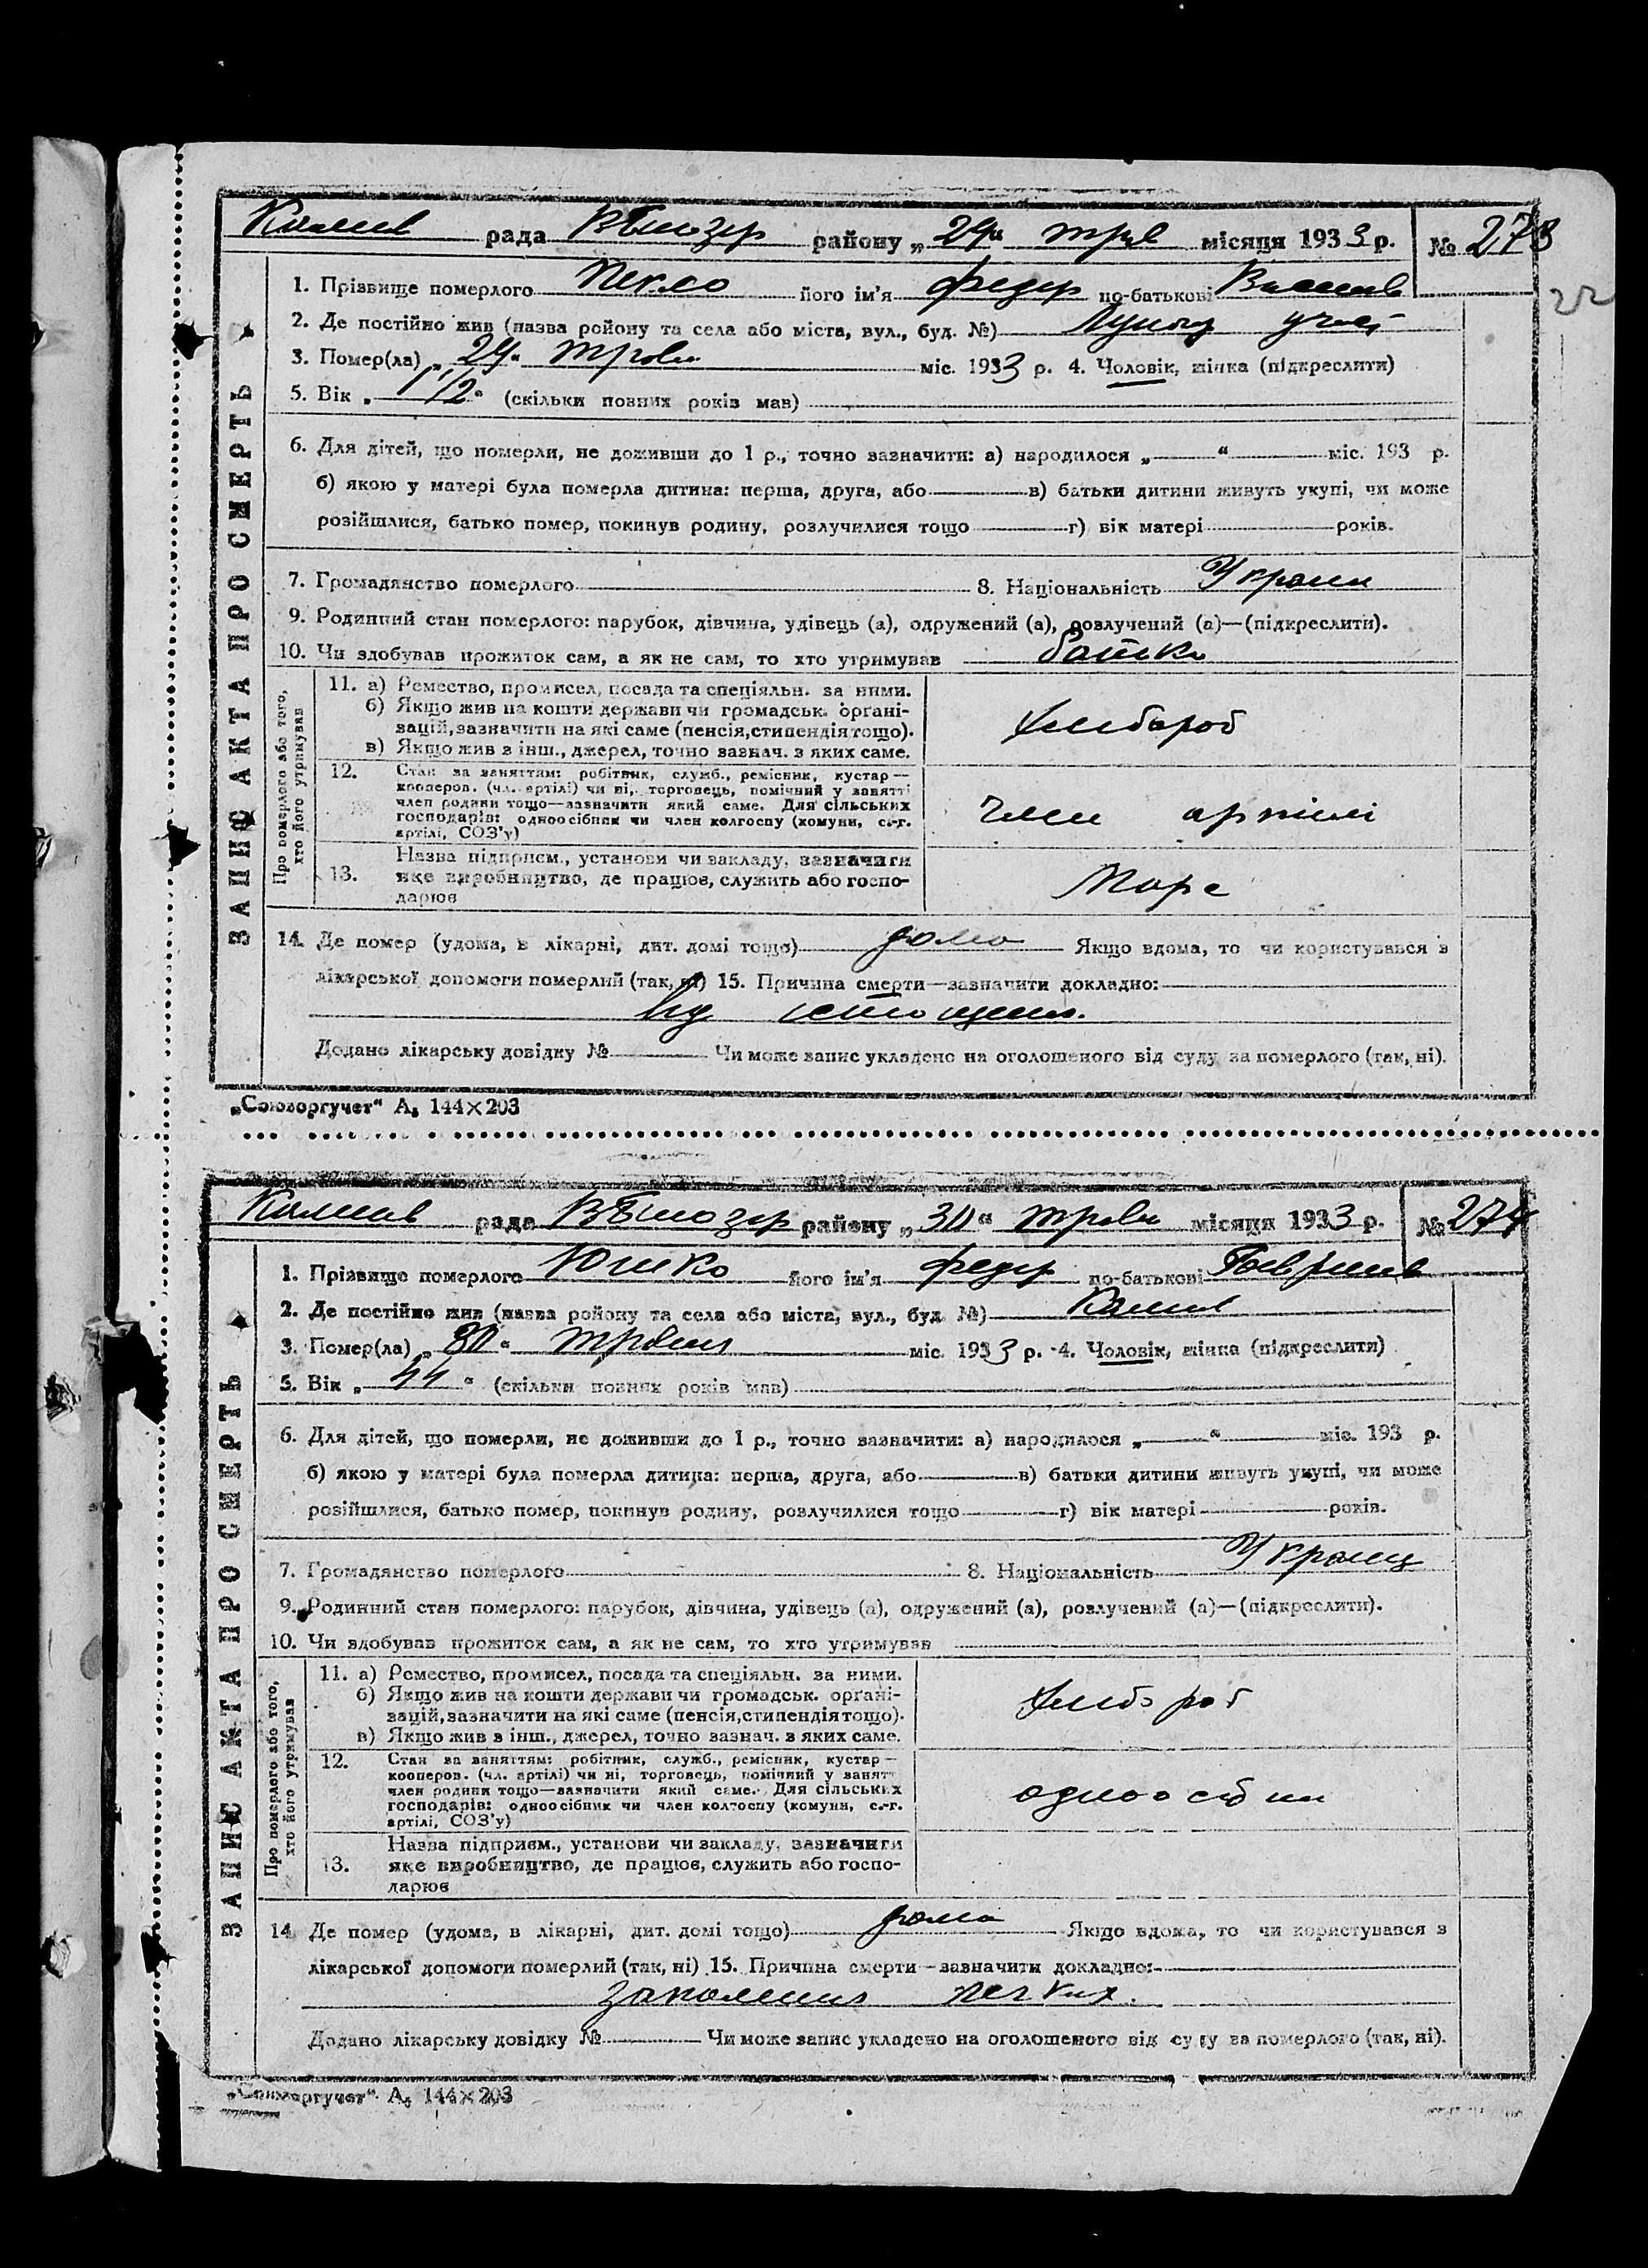 рада району „29“ трав місяця 1933 р. № 273
22
1. Прізвище померлого Пекло його ім'я Федір по-батькові
2. Де постійно жив (назва району та села або міста, вул., буд. №)
3. Помер(ла) „29“ травн міс. 1933 р. 4. Чоловік, жінка (підкреслити)
5. Вік „1 1/2“ (скільки повних років мав)
6. Для дітей, що померли, не доживши до 1 р., точно зазначити: а) народилося „ “ міс. 193 р.
б) якою у матері була померла дитина: перша, друга, або в) батьки дитини живуть укупі, чи може
розійшлися, батько помер, покинув родину, розлучилися тощо г) вік матері років.
7. Громадянство померлого 8. Національність Украин
9. Родинний стан померлого: парубок, дівчина, удівець (а), одружений (а), розлучений (а)—(підкреслити).
10. Чи здобував прожиток сам, а як не сам, то хто утримував батько
ЗАПИС АКТА ПРО СМЕРТЬ
Про померлого або того,
хто його утримував
11. а) Ремество, промисел, посада та спеціяльн. за ними.
б) Якщо жив на кошти держави чи громадськ. органі-
зацій, зазначити на які саме (пенсія, стипендія тощо).
в) Якщо жив з інш., джерел, точно зазнач. з яких саме.
хлібороб
12. Стан за заняттям: робітник, служб., ремісник, кустар—
кооперов. (чл. артілі) чи ні, торговець, помічний у занятті
член родини тощо—зазначити який саме. Для сільських
господарів: одноосібник чи член колгоспу (комуни, с.-г.
артілі, СОЗ'у)
член артілі
13. Назва підприєм., установи чи закладу, зазначити
яке виробництво, де працює, служить або госпо-
дарює
14. Де помер (удома, в лікарні, дит. домі тощо) дома Якщо вдома, то чи користувався з
лікарської допомоги померлий (так, ні) 15. Причина смерти—зазначити докладно:
від
Додано лікарську довідку № Чи може запис укладено на оголошеного від суду за померлого (так, ні).
„Союзоргучет“ А₅ 144×203
рада району „30“ травн місяця 1933 р. № 274
1. Прізвище померлого Юшко його ім'я Федір по-батькові
2. Де постійно жив (назва району та села або міста, вул., буд. №)
3. Помер(ла) „30“ травня міс. 1933 р. 4. Чоловік, жінка (підкреслити)
5. Вік „44“ (скільки повних років мав)
6. Для дітей, що померли, не доживши до 1 р., точно зазначити: а) народилося „ “ міс. 193 р.
б) якою у матері була померла дитина: перша, друга, або в) батьки дитини живуть укупі, чи може
розійшлися, батько помер, покинув родину, розлучилися тощо г) вік матері років.
7. Громадянство померлого 8. Національність Украінц
9. Родинний стан померлого: парубок, дівчина, удівець (а), одружений (а), розлучений (а)—(підкреслити).
10. Чи здобував прожиток сам, а як не сам, то хто утримував
ЗАПИС АКТА ПРО СМЕРТЬ
Про померлого або того,
хто його утримував
11. а) Ремество, промисел, посада та спеціяльн. за ними.
б) Якщо жив на кошти держави чи громадськ. органі-
зацій, зазначити на які саме (пенсія, стипендія тощо).
в) Якщо жив з інш., джерел, точно зазнач. з яких саме.
хлібороб
12. Стан за заняттям: робітник, служб., ремісник, кустар—
кооперов. (чл. артілі) чи ні, торговець, помічний у занятт
член родини тощо—зазначити який саме. Для сільських
господарів: одноосібник чи член колгоспу (комуни, с.-г.
артілі, СОЗ'у)
одноосібни
13. Назва підприєм., установи чи закладу, зазначити
яке виробництво, де працює, служить або госпо-
дарює
14. Де помер (удома, в лікарні, дит. домі тощо) дома Якщо вдома, то чи користувався з
лікарської допомоги померлий (так, ні) 15. Причина смерти—зазначити докладно:
запаления легких.
Додано лікарську довідку № Чи може запис укладено на оголошеного від суду за померлого (так, ні).
„Союзоргучет“ А₅ 144×203